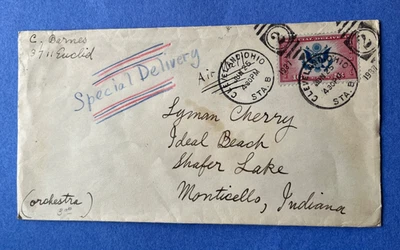 C. Bernes
3711 Euclid
Special Delivery
Air
CLEVELAND, OHIO
STA. B
CLEVELAND OHIO
STA. B
2
2
Lyman Cherry
Ideal Beach
Shafer Lake
Monticello, Indiana
(orchestra)